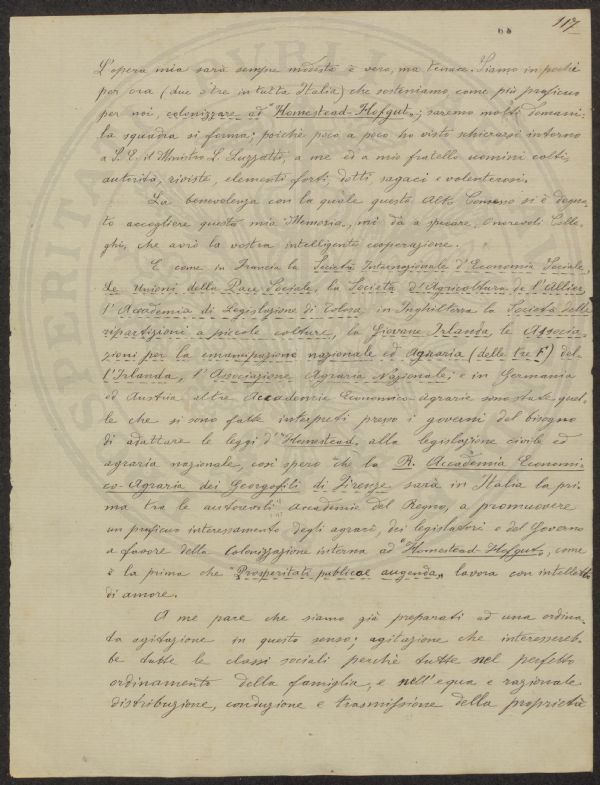 68
117
L'opera mia sarà sempre modesta è vero, ma tenace. Siamo in pochi
per ora (due o tre in tutta Italia) che sosteniamo, come più proficuo
per noi, colonizzare ad "Homestead-Hofgut"; saremo molti domani:
la squadra si forma; poichè poco a poco ho visto schierarsi intorno
a S. E. il Ministro L. Luzzatti, a me ed a mio fratello uomini colti,
autorità, riviste, elementi forti, dotti, sagaci e volenterosi.
La benevolenza con la quale questo Alto Consesso si è degna-
to accogliere questa mia "Memoria", mi dà a sperare, Onorevoli Colle-
ghi, che avrò la vostra intelligente cooperazione.
E come in Francia la Società Internazionale d'Economia Sociale,
le Unioni della Pace Sociale, la Società d'Agricoltura de l'Allier,
l'Accademia di Legislazione di Tolosa, in Inghilterra la Società delle
ripartizioni a piccole colture, la Giovane Irlanda, le Associa-
zioni per la emancipazione nazionale ed Agraria (delle tre F) del-
l'Irlanda, l'Associazione Agraria Nazionale; e in Germania
ed Austria altre Accademie Economico-Agrarie sono state quel-
le che si sono fatte interpreti presso i governi del bisogno
di adattare le leggi d'"Homestead" alla legislazione civile ed
agraria nazionale, così spero che la R. Accademia Economi-
co-Agraria dei Georgofili di Firenze sarà in Italia la pri-
ma tra le autorevoli Accademie del Regno, a promuovere
un proficuo interessamento degli agrari, dei legislatori e del Governo
a favore della Colonizzazione interna ad "Homestead-Hofgut", come
è la prima che "Prosperitati publicae augenda" lavora con intelletto
di amore.
A me pare che siamo già preparati ad una ordina-
ta agitazione in questo senso; agitazione che interessereb-
be tutte le classi sociali perchè tutte nel perfetto
ordinamento della famiglia, e nell'equa e razionale
distribuzione, conduzione e trasmissione della proprietà